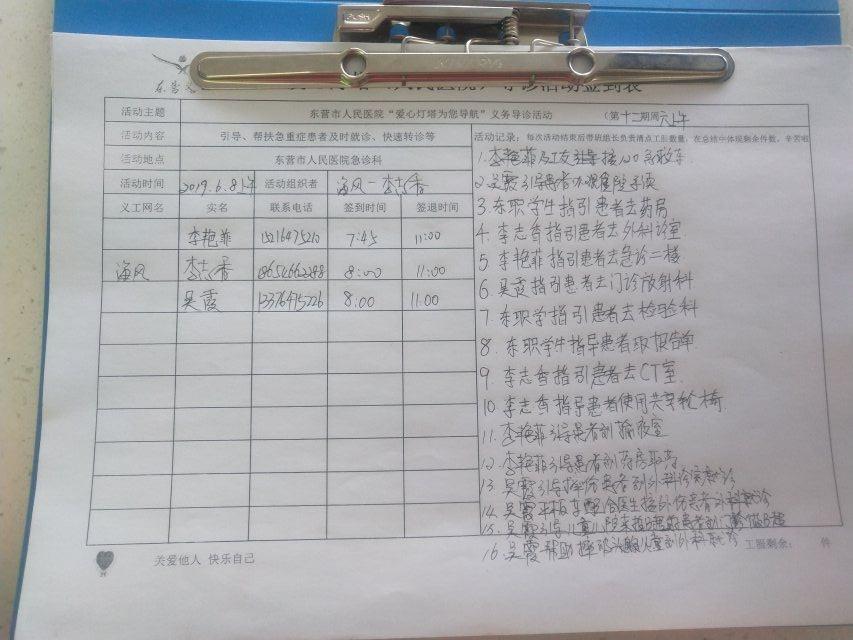 东营
人民医院
导诊活动签到表
活动主题 东营市人民医院“爱心灯塔为您导航”义务导诊活动 （第十二期周六上午
活动内容 引导、帮扶急重症患者及时就诊、快速转诊等 活动记录：每次活动结束后带班组长负责清点工服数量，在总结中体现剩余件数，辛苦啦
活动地点 东营市人民医院急诊科
活动时间 2019.6.8上午 活动组织者 海风-李志香
义工网名 实名 联系电话 签到时间 签退时间
李艳菲 15216475210 7:45 11:00
海风 李志香 8:00 11:00
吴霞 13376415226 8:00 11:00
1. 李艳菲 120
2. 吴霞引导患者办
3. 东职学生指引患者去药房
4. 李志香指引患者去外科诊室
5 李艳菲指引患者去急诊二楼
6. 吴霞指引患者去门诊放射科
7. 东职学指引患者去检验科
8. 东职学生指导患者取报告单
9. 李志香指引患者去CT室.
10 李志香指导患者使用共享轮椅
11. 李艳菲引导患者到输液室
12. 李艳菲引导患者到药房取药
13 吴霞引导摔伤患者到外科诊室就诊
14. 吴霞平板车配合医生接外伤患者外科就诊
15. 吴霞引导儿童
16. 吴霞帮助 儿童到外科就诊
工服剩余： 件
关爱他人 快乐自己